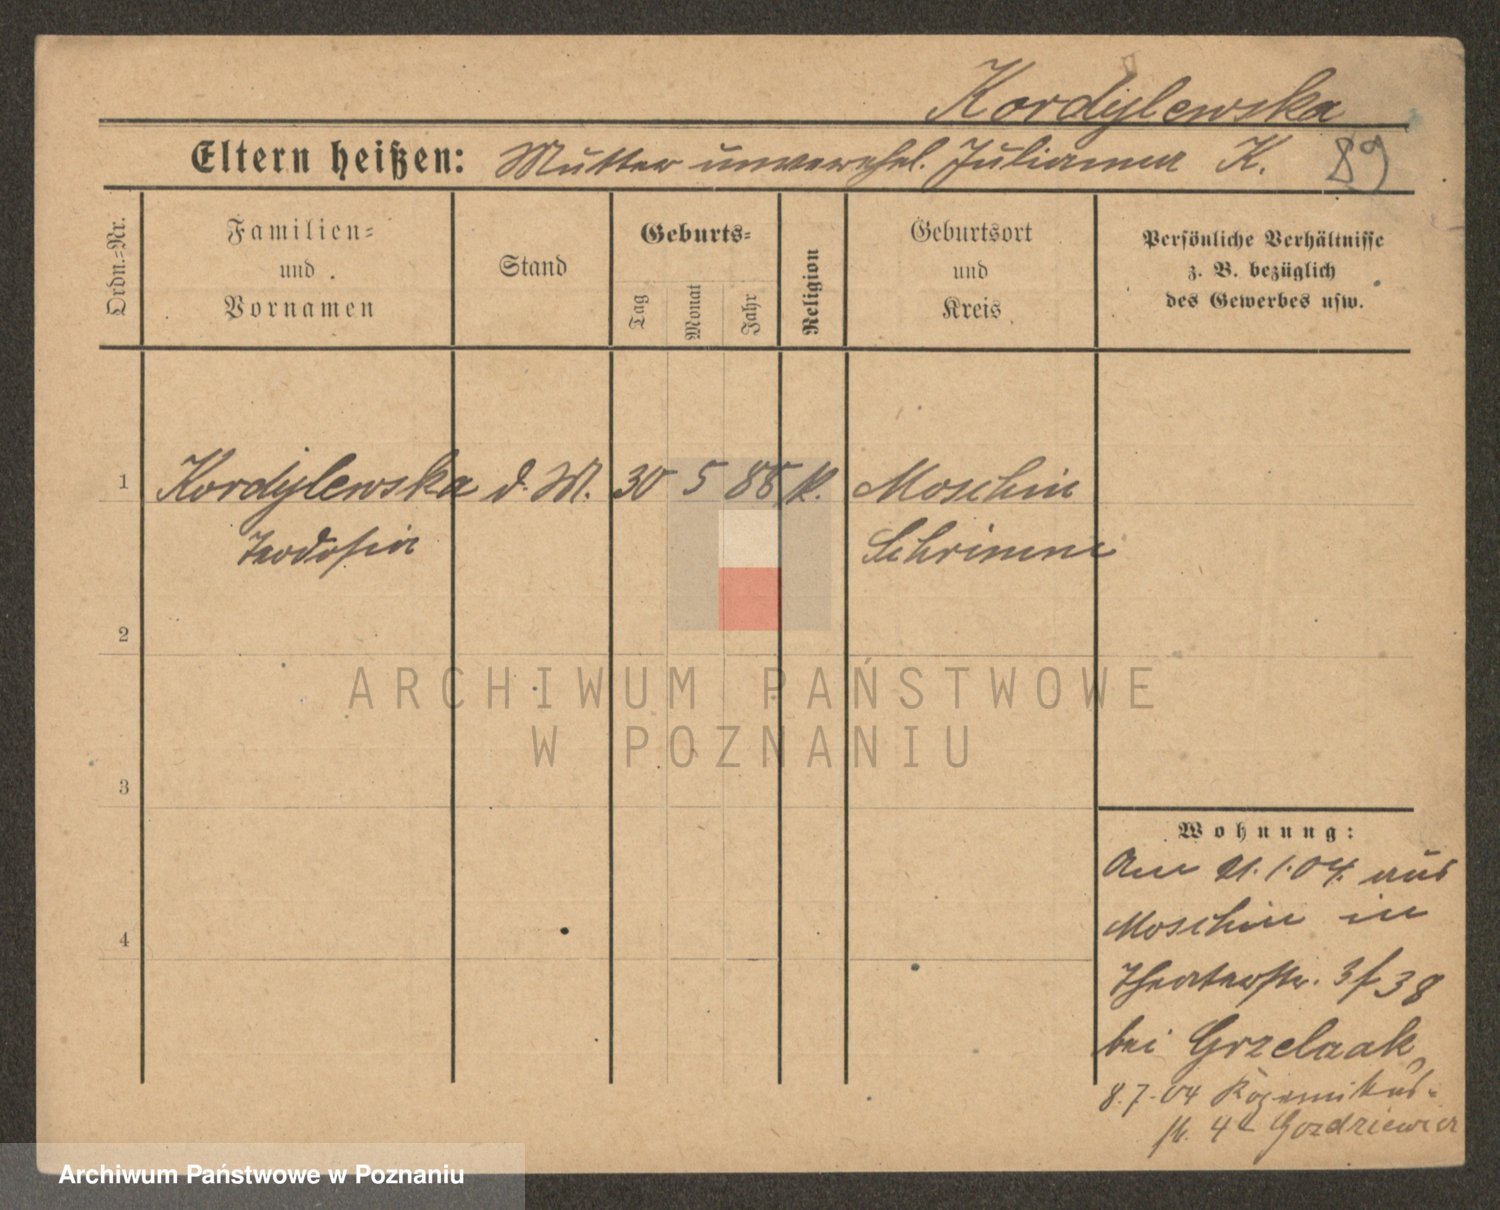 Kordylewska
Eltern heißen: Mutter unverehel. Julianna K. 89
Ordn.-Nr.
Familien-
und
Vornamen
Stand
Geburts-
Tag
Monat
Jahr
Religion
Geburtsort
und
Kreis
Persönliche Verhältnisse
z. B. bezüglich
des Gewerbes usw.
1 Kordylewska d. M. 30 5 88 k. Moschin
Teodosia Schrimm
2
3
4
Wohnung:
Am 21.1.04. aus
Moschin in
Theaterstr. 3
bei Grzelaak
8.7.04
4 Gozdziewicz
ARCHIWUM PAŃSTWOWE
W POZNANIU
Archiwum Państwowe w Poznaniu